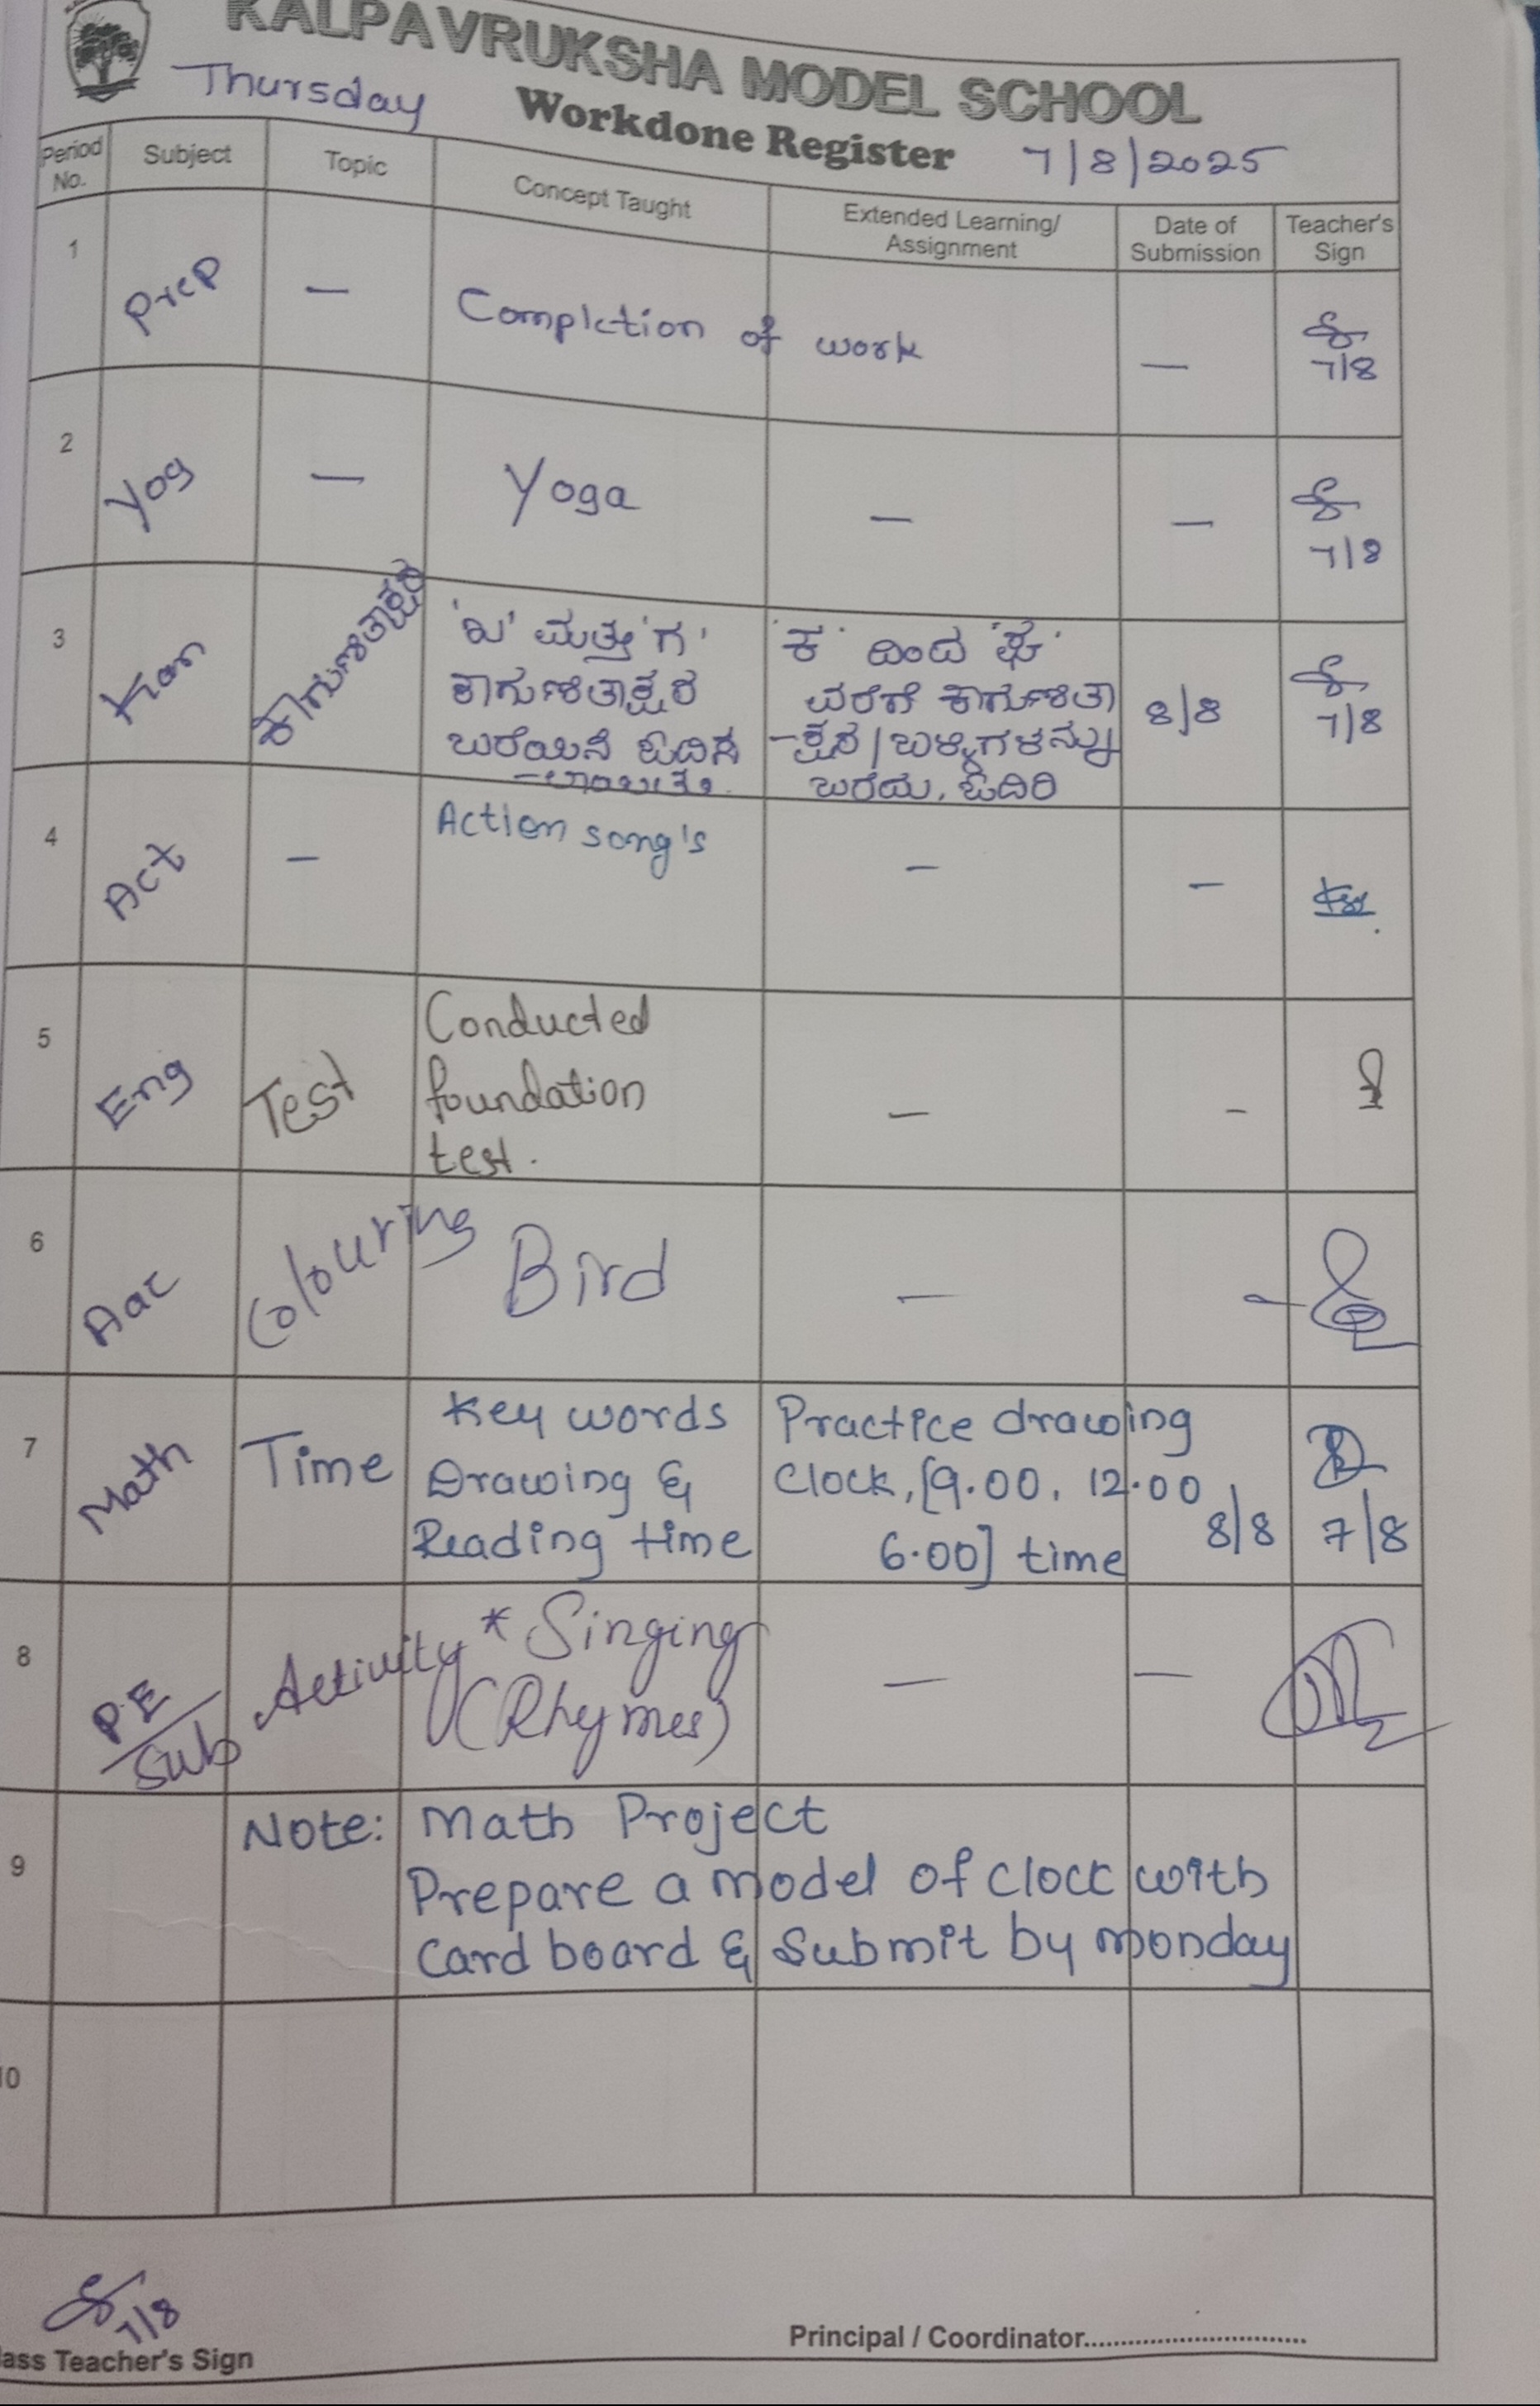 KALPAVRUKSHA MODEL SCHOOL
Thursday
Workdone Register
7/8/2025
Period No.
Subject
Topic
Concept Taught
Extended Learning/ Assignment
Date of Submission
Teacher's Sign
1
Prep
—
Completion of work
—
7/8
2
Yog
—
Yoga
—
—
7/8
3
Kan
ಕಾಗುಣಿತಾಕ್ಷರ
'ಖ' ಮತ್ತು 'ಗ'
ಕಾಗುಣಿತಾಕ್ಷರ
ಬರೆಯಿಸಿ ಓದಿಸ
'ಕ' ದಿಂದ 'ಘ'
ವರೆಗೆ ಕಾಗುಣಿತಾ
-ಕ್ಷರ / ಬಳ್ಳಿಗಳನ್ನು
ಬರೆದು, ಓದಿರಿ
8/8
7/8
4
Act
—
Action song's
—
—
5
Eng
Test
Conducted
foundation
test.
—
-
6
Aac
Colouring
Bird
—
7
Math
Time
Key words
Drawing &
Reading time
Practice drawing
Clock, [9.00, 12.00
6.00] time
8/8
7/8
8
PE/Sub
Activity
* Singing
(Rhymes)
—
—
9
Note: Math Project
Prepare a model of clock with
Card board & Submit by monday
10
7/8
lass Teacher's Sign
Principal / Coordinator..............................